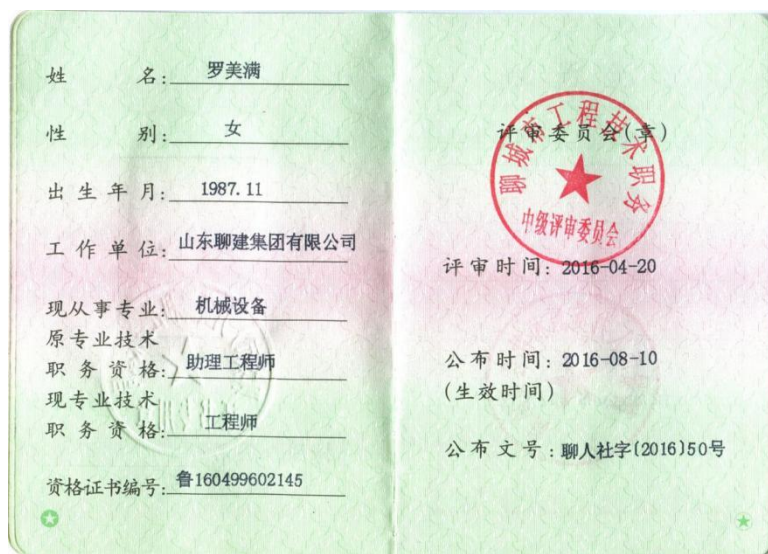 姓 名: 罗美满
性 别: 女
出生年月: 1987.11
工作单位: 山东聊建集团有限公司
现从事专业: 机械设备
原专业技术
职务资格: 助理工程师
现专业技术
职务资格: 工程师
资格证书编号: 鲁160499602145
聊城市工程技术职务
评审委员会(章)
中级评审委员会
评审时间: 2016-04-20
公布时间: 2016-08-10
(生效时间)
公布文号: 聊人社字[2016]50号